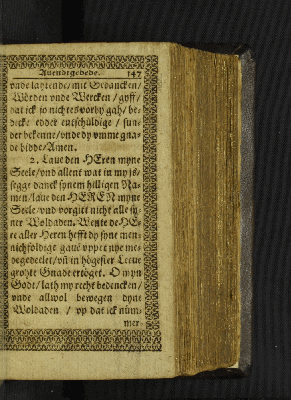 Avendtgebede. 147
vnde laxtende / mit Gedancken /
Wörden vnde Wercken / gyff /
dat ick io nich tes vorby gah / be-
decke edder entschüldige / sun-
der bekenne / vnde dy vmme gna-
de bidde / Amen.
2. Laue den HEren myne
Seele / vnd allent wat in my is /
segge danck synem hilligen Na-
men / laue den HEREN myne
Seele / vnd vorgitt nicht alle sy-
ner Woldaden. Wente de HE-
re aller Heren hefft dy syne men-
nichfoldige gaue vppet nye mede
gedeelet / vñ in högester Leeue
grote Gnade ertöget. O myn
Godt / lath my recht bedencken /
vnde allwol bewegen dyne
Woldaden / vp dat ick nüm-
mer